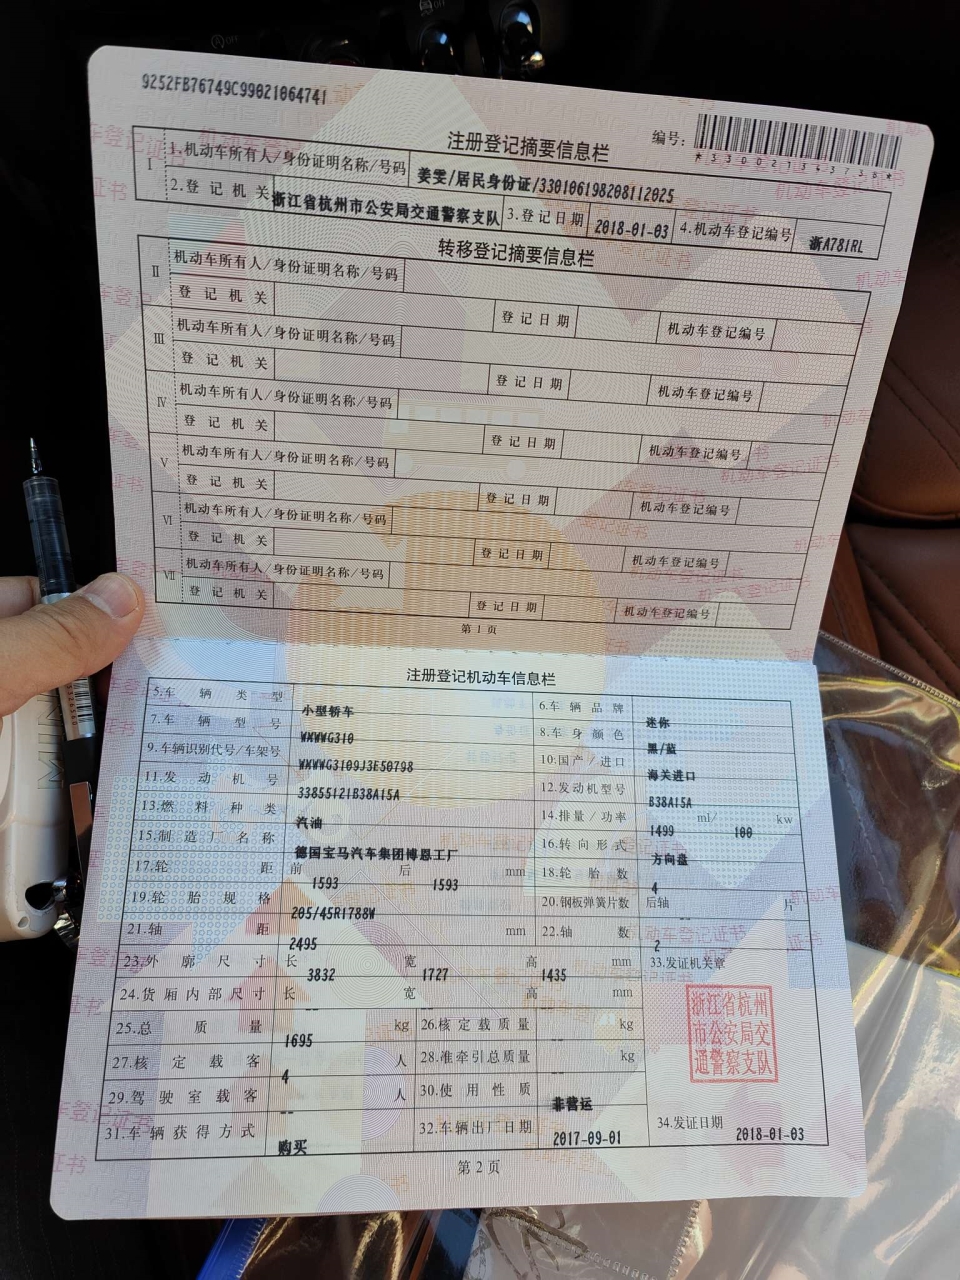 9252FB76749C99021064741
注册登记摘要信息栏
编号:
*330021343736*
I
1.机动车所有人/身份证明名称/号码 姜雯/居民身份证/330106198208112025
2.登记机关 浙江省杭州市公安局交通警察支队 3.登记日期 2018-01-03 4.机动车登记编号 浙A781RL
转移登记摘要信息栏
II 机动车所有人/身份证明名称/号码
登记机关 登记日期 机动车登记编号
III 机动车所有人/身份证明名称/号码
登记机关 登记日期 机动车登记编号
IV 机动车所有人/身份证明名称/号码
登记机关 登记日期 机动车登记编号
V 机动车所有人/身份证明名称/号码
登记机关 登记日期 机动车登记编号
VI 机动车所有人/身份证明名称/号码
登记机关 登记日期 机动车登记编号
VII 机动车所有人/身份证明名称/号码
登记机关 登记日期 机动车登记编号
第1页
注册登记机动车信息栏
5.车辆类型 小型轿车 6.车辆品牌 迷你
7.车辆型号 WMWWG310 8.车身颜色 黑/蓝
9.车辆识别代号/车架号 WMWWG3109J3E50798 10.国产/进口 海关进口
11.发动机号 33855121B38A15A 12.发动机型号 B38A15A
13.燃料种类 汽油 14.排量/功率 1499 ml/ 100 kw
15.制造厂名称 德国宝马汽车集团博恩工厂 16.转向形式 方向盘
17.轮距 前 1593 后 1593 mm 18.轮胎数 4
19.轮胎规格 205/45R1788W 20.钢板弹簧片数 后轴 -- 片
21.轴距 2495 mm 22.轴数 2
23.外廓尺寸 长 3832 宽 1727 高 1435 mm 33.发证机关章
24.货厢内部尺寸 长 -- 宽 -- 高 -- mm
浙江省杭州
市公安局交
通警察支队
25.总质量 1695 kg 26.核定载质量 -- kg
27.核定载客 4 人 28.准牵引总质量 -- kg
29.驾驶室载客 -- 人 30.使用性质 非营运
31.车辆获得方式 购买 32.车辆出厂日期 2017-09-01 34.发证日期 2018-01-03
第2页